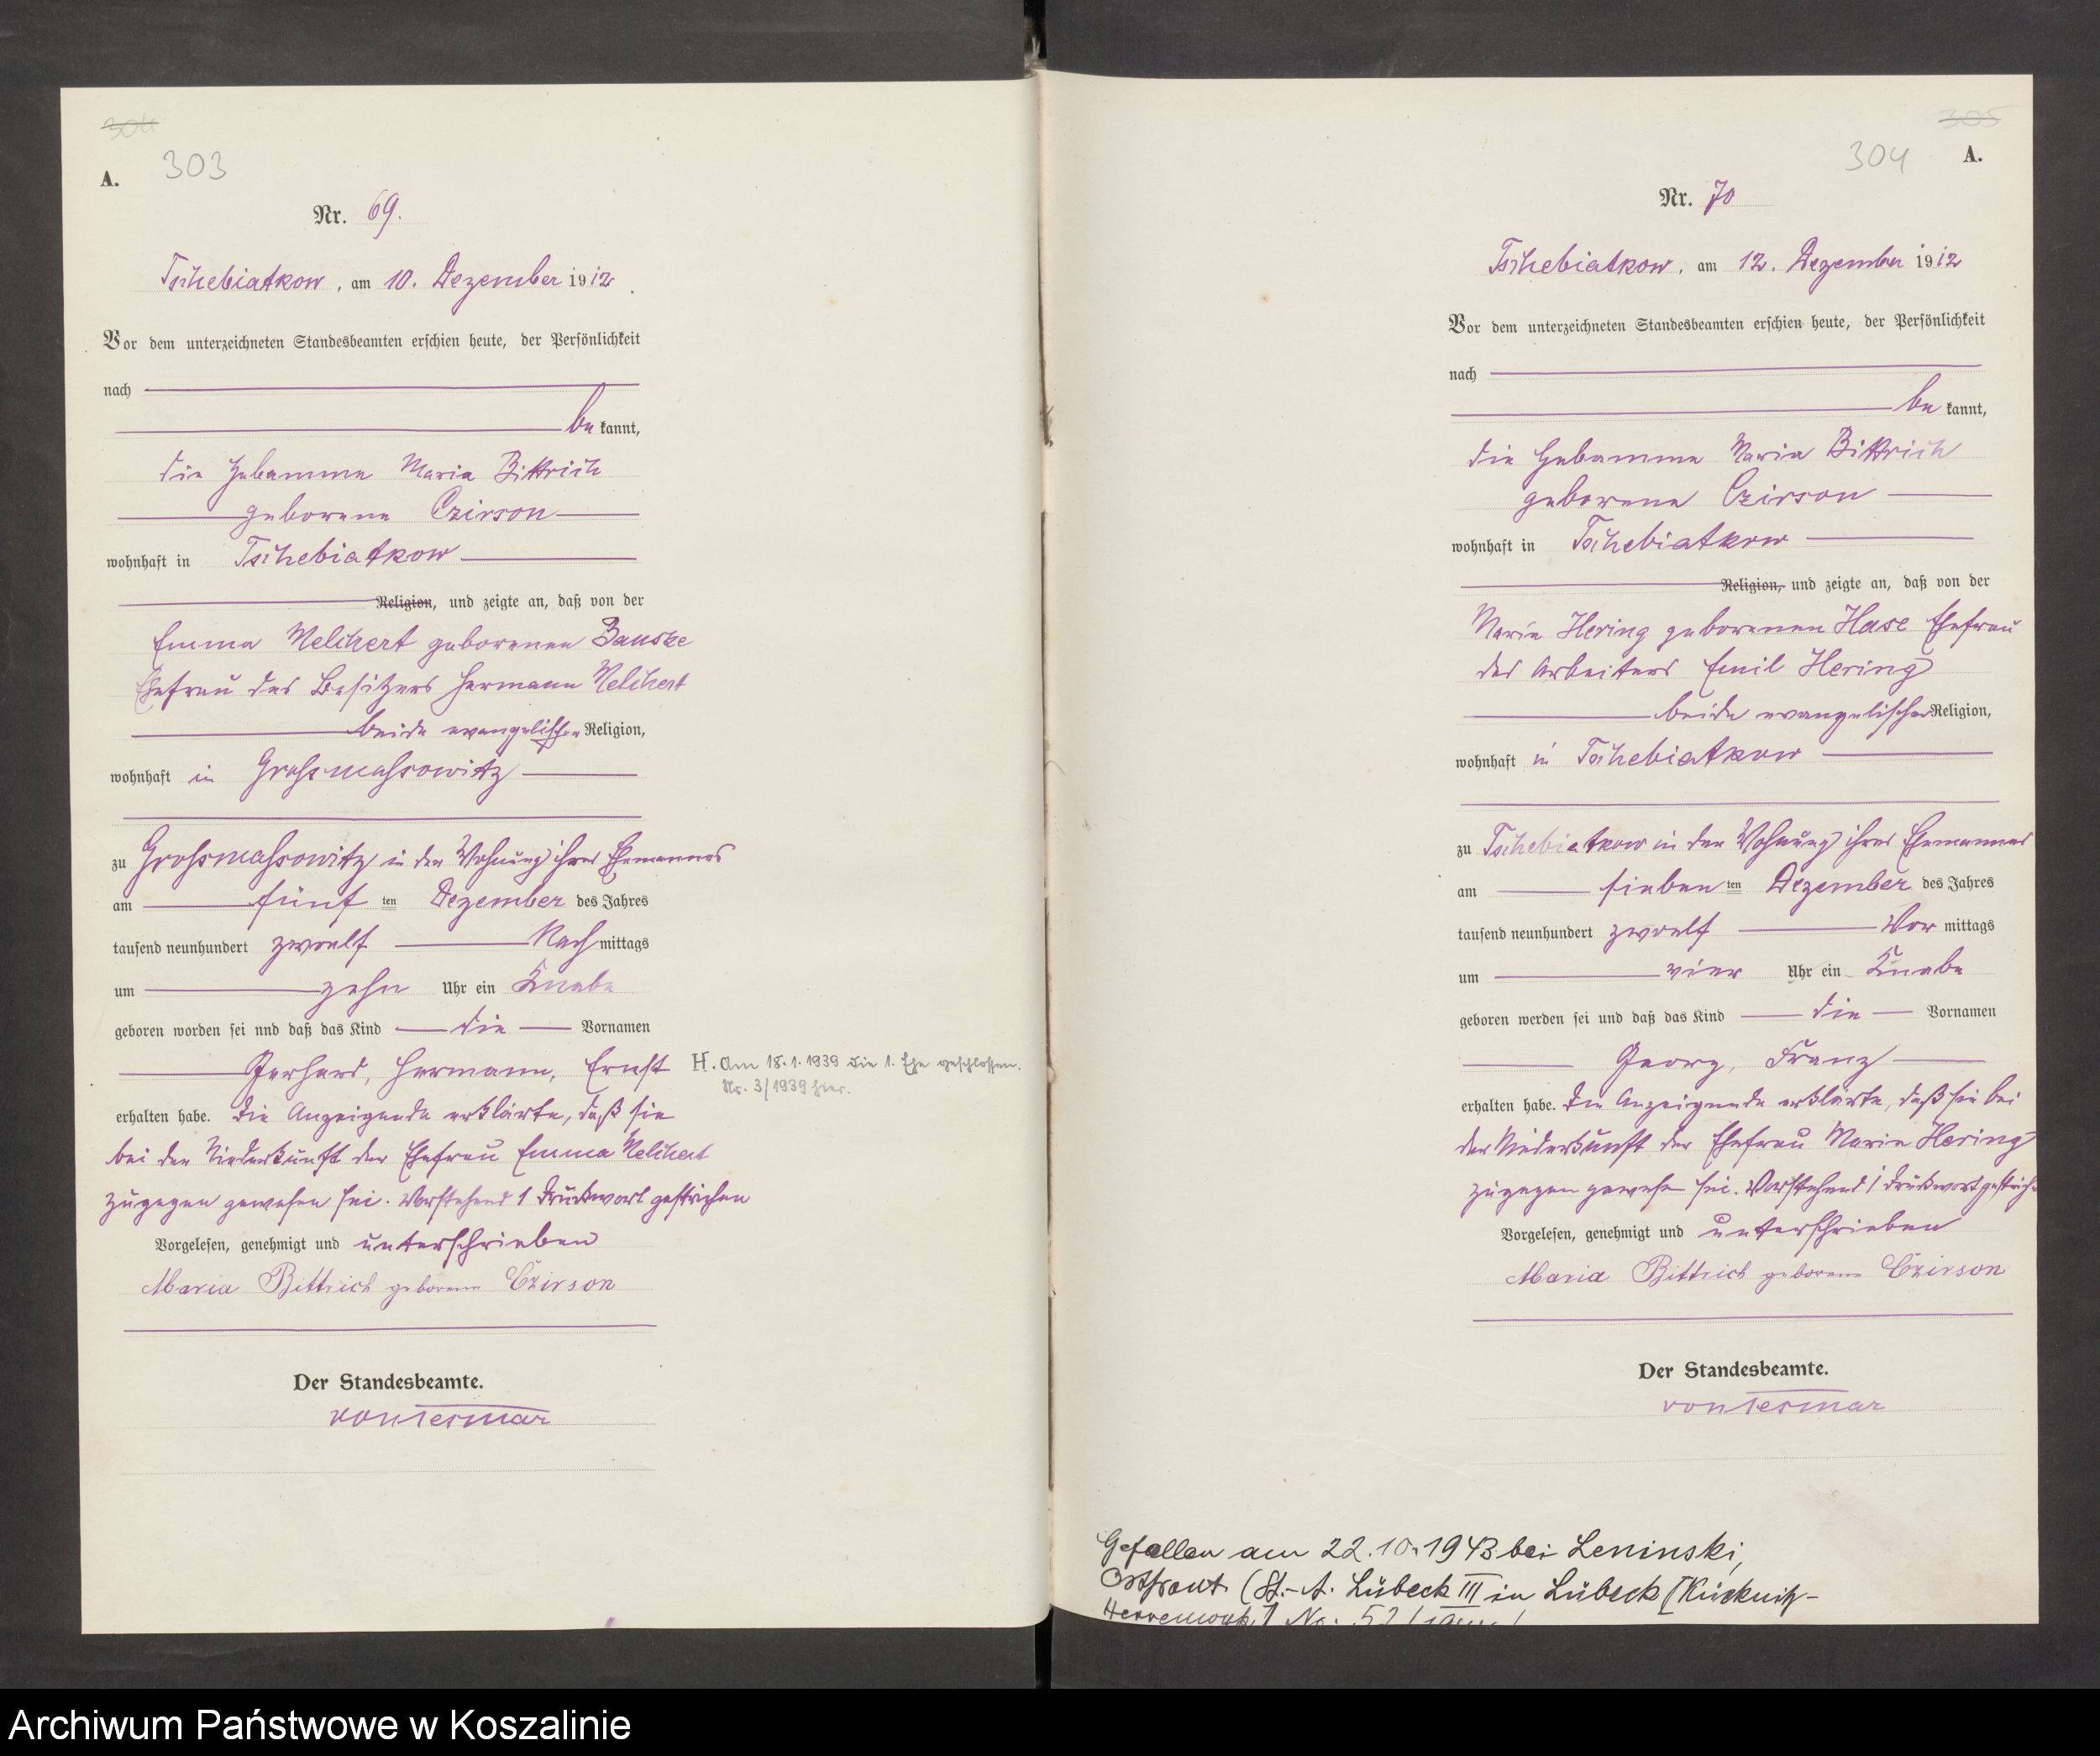 304
A. 303
Nr. 69.
Tschebiatkow, am 10. Dezember 1912
Vor dem unterzeichneten Standesbeamten erschien heute, der Persönlichkeit
nach
be kannt,
die Hebamme Maria Bittrich
geborene Czirson
wohnhaft in Tschebiatkow
Religion, und zeigte an, daß von der
Emma Melchert geborenen Bauske
Ehefrau des Besitzers Hermann Melchert
beide evangelischer Religion,
wohnhaft in Grossmassowitz
zu Grossmassowitz in der Wohnung ihres Ehemannes
am fünf ten Dezember des Jahres
tausend neunhundert zwoelf Nach mittags
um zehn Uhr ein Knabe
geboren worden sei nnd daß das Kind die Vornamen
Gerhard, Hermann, Ernst
H. Am 18.1.1939 die 1. Ehe geschlossen.
Nr. 3/1939 hier.
erhalten habe. Die Anzeigende erklärte, daß sie
bei der Niederkunft der Ehefrau Emma Melchert
zugegen gewesen sei. Vorstehend 1 Druckwort gestrichen
Vorgelesen, genehmigt und unterschrieben
Maria Bittrich geborene Czirson
Der Standesbeamte.
von Tesmar
305
304 A.
Nr. 70
Tschebiatkow, am 12. Dezember 1912
Vor dem unterzeichneten Standesbeamten erschien heute, der Persönlichkeit
nach
be kannt,
die Hebamme Maria Bittrich
geborene Czirson
wohnhaft in Tschebiatkow
Religion, und zeigte an, daß von der
Marie Hering geborenen Hase Ehefrau
des Arbeiters Emil Hering
beide evangelischer Religion,
wohnhaft in Tschebiatkow
zu Tschebiatkow in der Wohnung ihres Ehemannes
am sieben ten Dezember des Jahres
tausend neunhundert zwoelf Vor mittags
um vier Uhr ein Knabe
geboren werden sei und daß das Kind die Vornamen
Georg, Franz
erhalten habe. Die Anzeigende erklärte, daß sie bei
der Niederkunft der Ehefrau Marie Hering
zugegen gewesen sei. Vorstehend 1 Druckwort gestrich
Vorgelesen, genehmigt und unterschrieben
Maria Bittrich geborene Czirson
Der Standesbeamte.
von Tesmar
Gefallen am 22.10.1943 bei Leninski,
Ostfront. (St.-A. Lübeck III in Lübeck [Kücknitz-
Herrenwyk.] No: 52
Archiwum Państwowe w Koszalinie